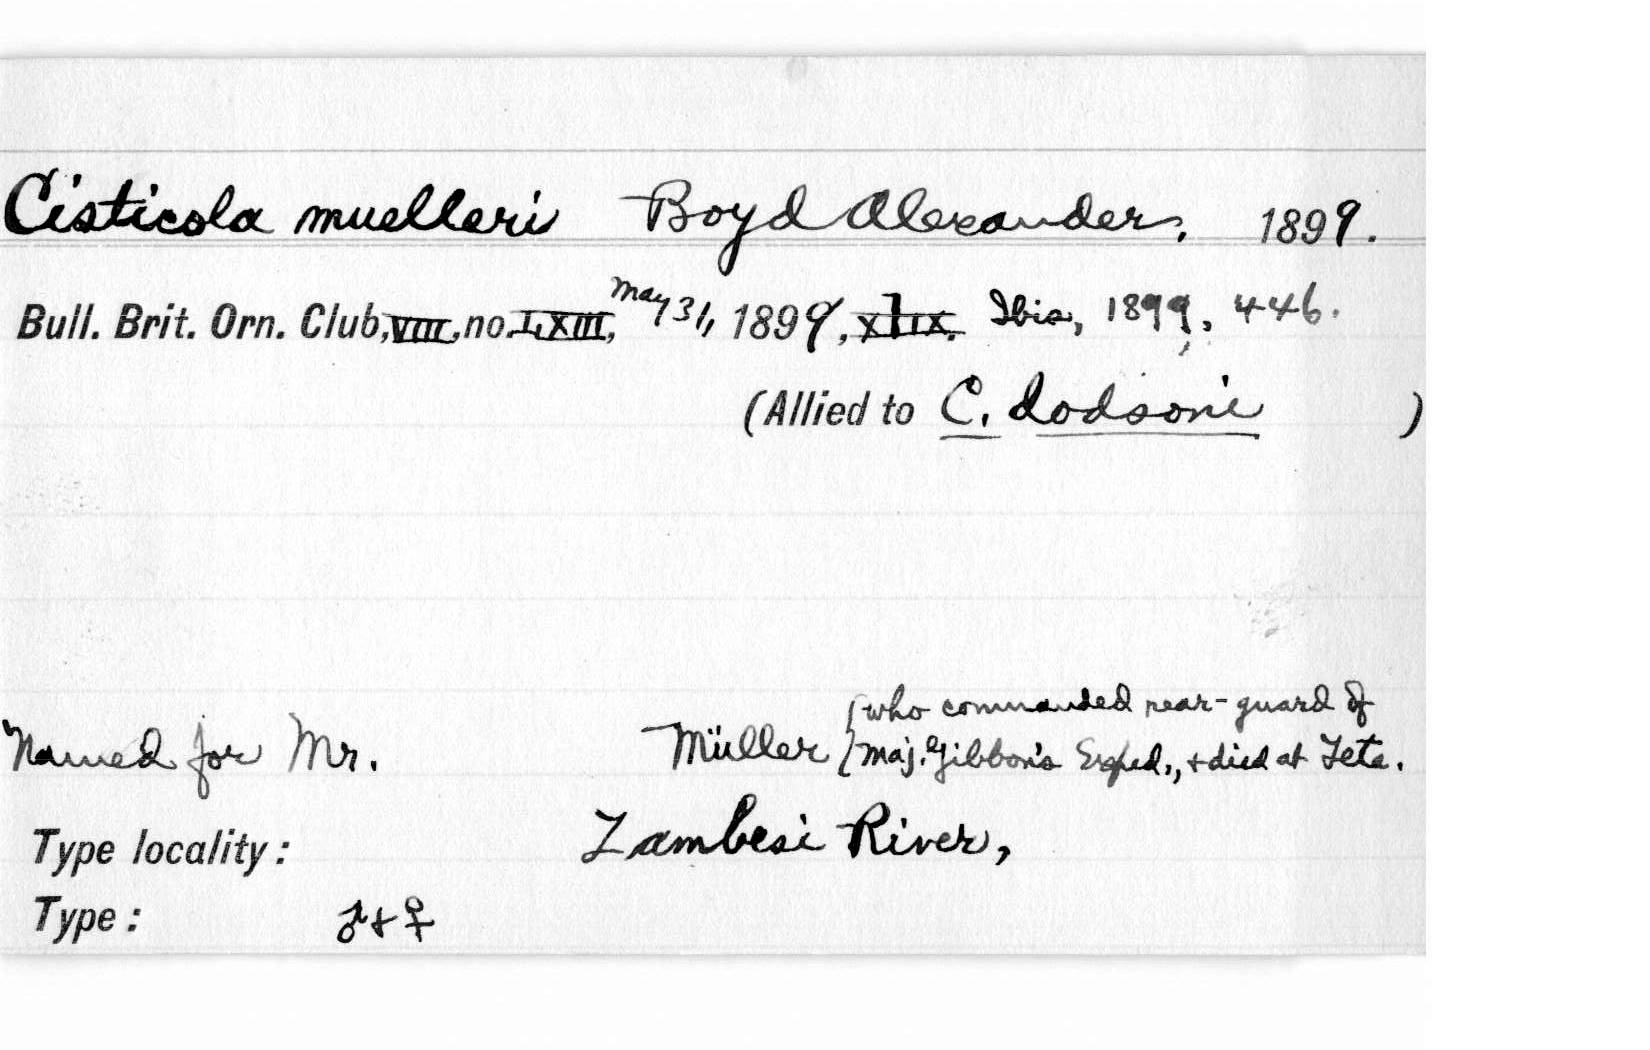 Cisticola muelleri Boyd Alexander, 1899.
Bull. Brit. Orn. Club, VIII, no. LXIII, May 31, 1899, xlix. Ibis, 1899, 446.
(Allied to C. dodsoni )
Named for Mr. Müller {who commanded rear-guard of
Maj. Gibbon's Exped., + died at Tete.
Type locality: Zambesi River,
Type: ♂ + ♀